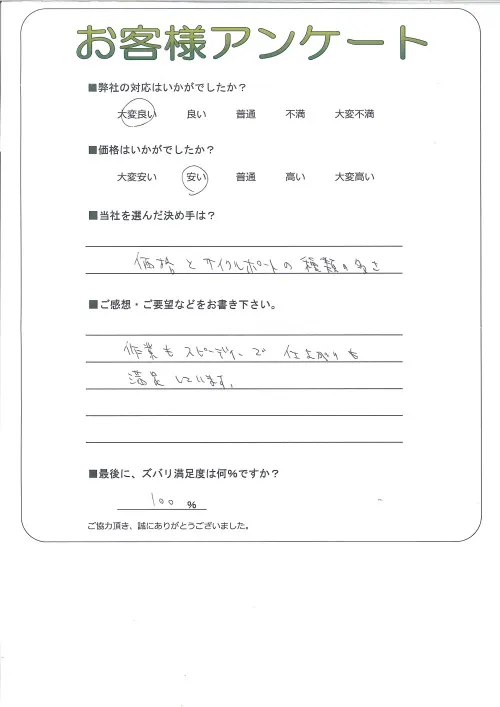 お客様アンケート
■弊社の対応はいかがでしたか？
大変良い 良い 普通 不満 大変不満
■価格はいかがでしたか？
大変安い 安い 普通 高い 大変高い
■当社を選んだ決め手は？
価格とサイクルポートの種類の多さ
■ご感想・ご要望などをお書き下さい。
作業もスピーディーで 仕上がりも
満足しています。
■最後に、ズバリ満足度は何%ですか？
100 %
ご協力頂き、誠にありがとうございました。